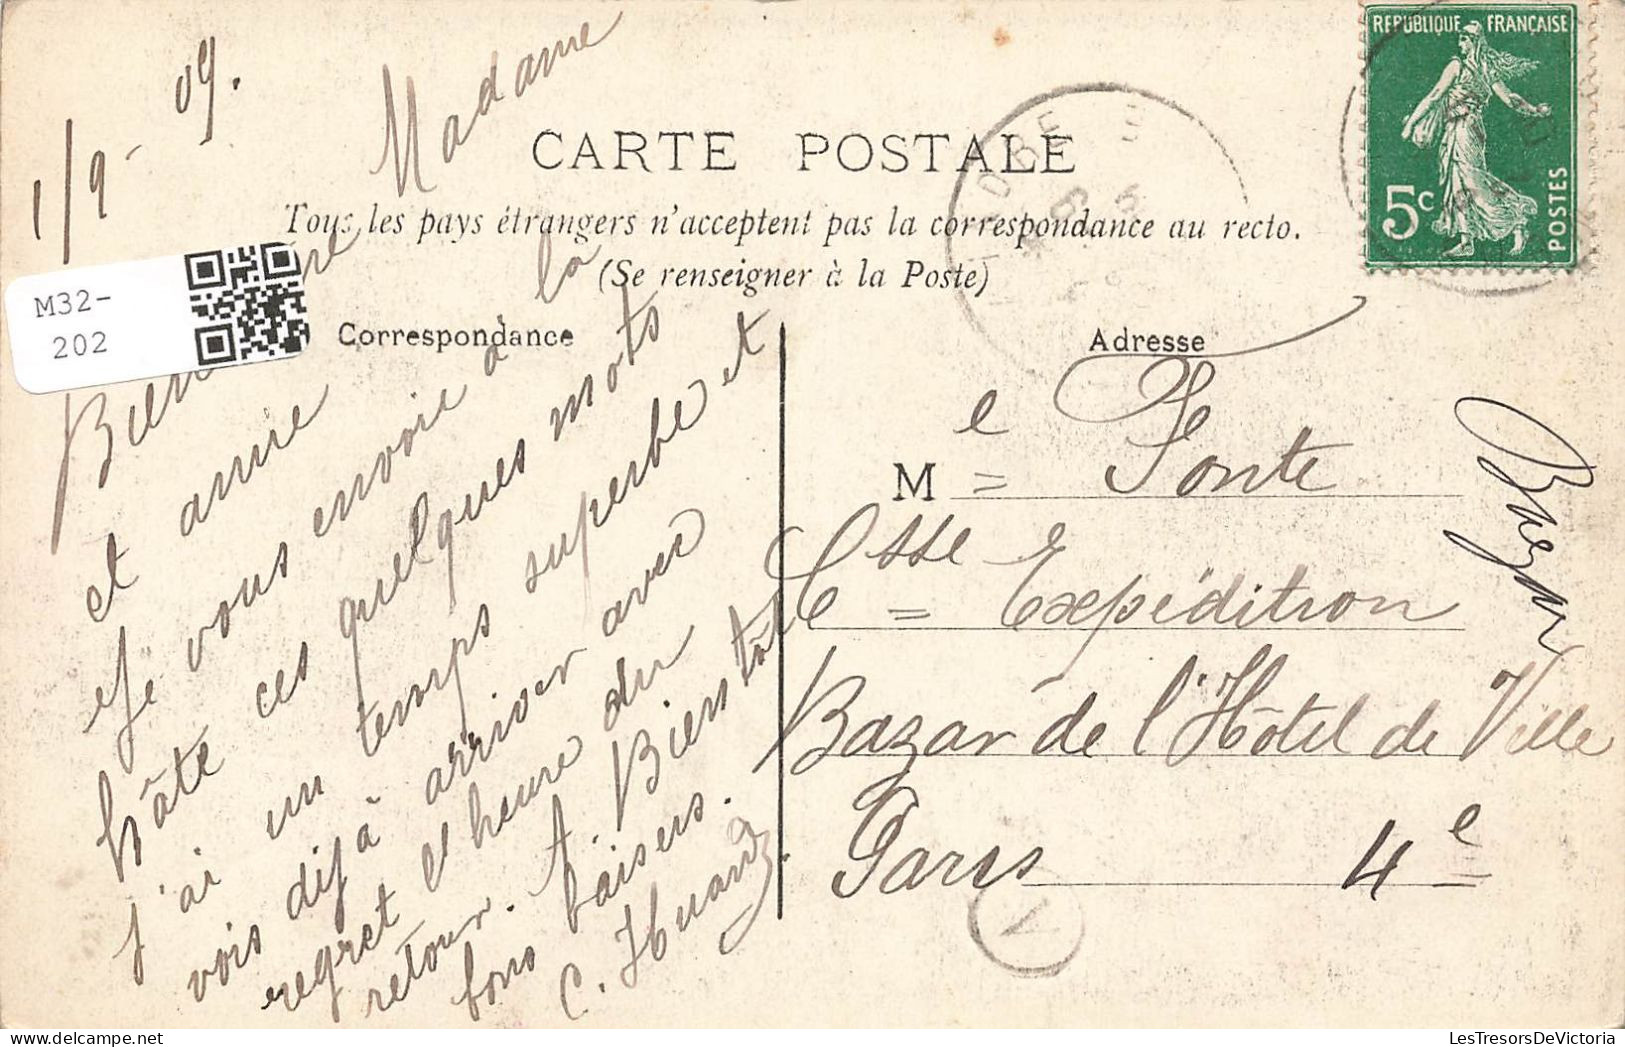 RÉPUBLIQUE FRANÇAISE
5c
POSTES
1/9-09.
Madame
CARTE POSTALE
Tous les pays étrangers n'acceptent pas la correspondance au recto.
(Se renseigner à la Poste)
M32-
202
Correspondance
Bien re
et amie
Je vous envoie à la
hâte ces quelques mots
j'ai un temps superbe et
vois déjà arriver avec
regret l'heure du
retour. A Bientôt
bons baisers.
C. Huard
Adresse
Me Ponte
Csse Expédition
Bazar de l'Hôtel de Ville
Paris 4e
V
LesTresorsDeVictoria.com